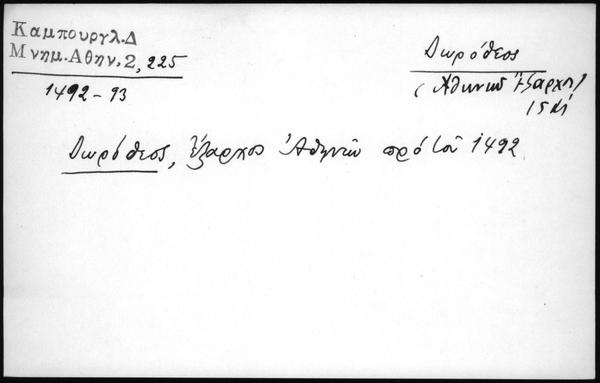 Καμπουργλ.Δ
Μνημ.Αθην.2, 225
1492-93
Δωρόθεος
(Ἀθηνῶν Ἔξαρχος)
Δωρόθεος, Ἔξαρχος Ἀθηνῶν πρό τοῦ 1492